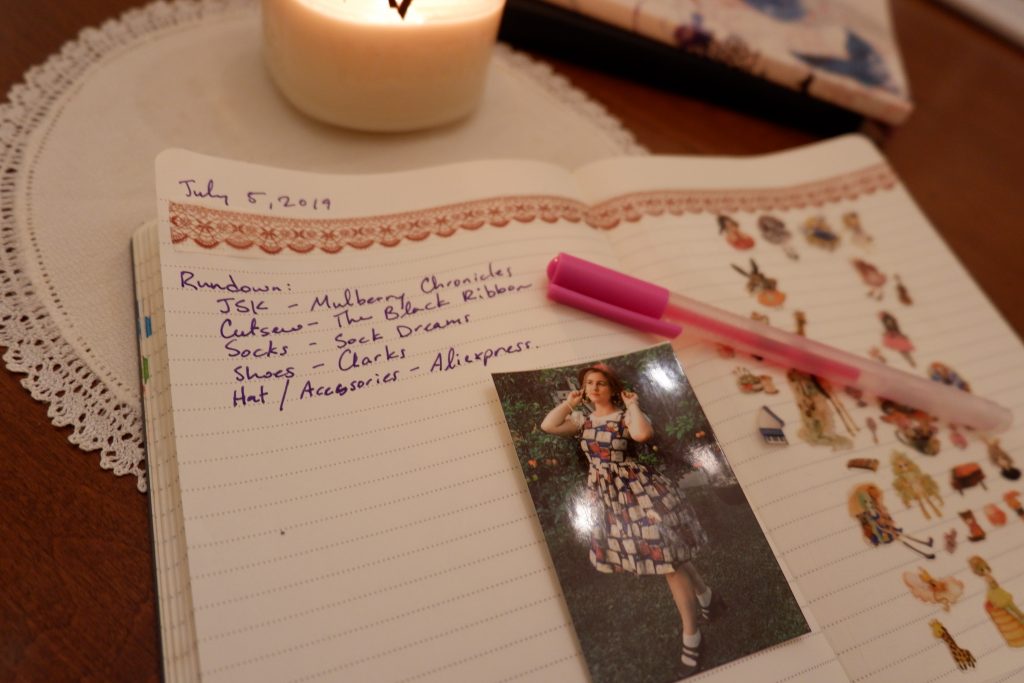 July 5, 2019
Rundown:
JSK - Mulberry Chronicles
Cutsew - The Black Ribbon
Socks - Sock Dreams
Shoes - Clarks
Hat / Accessories - Aliexpress.